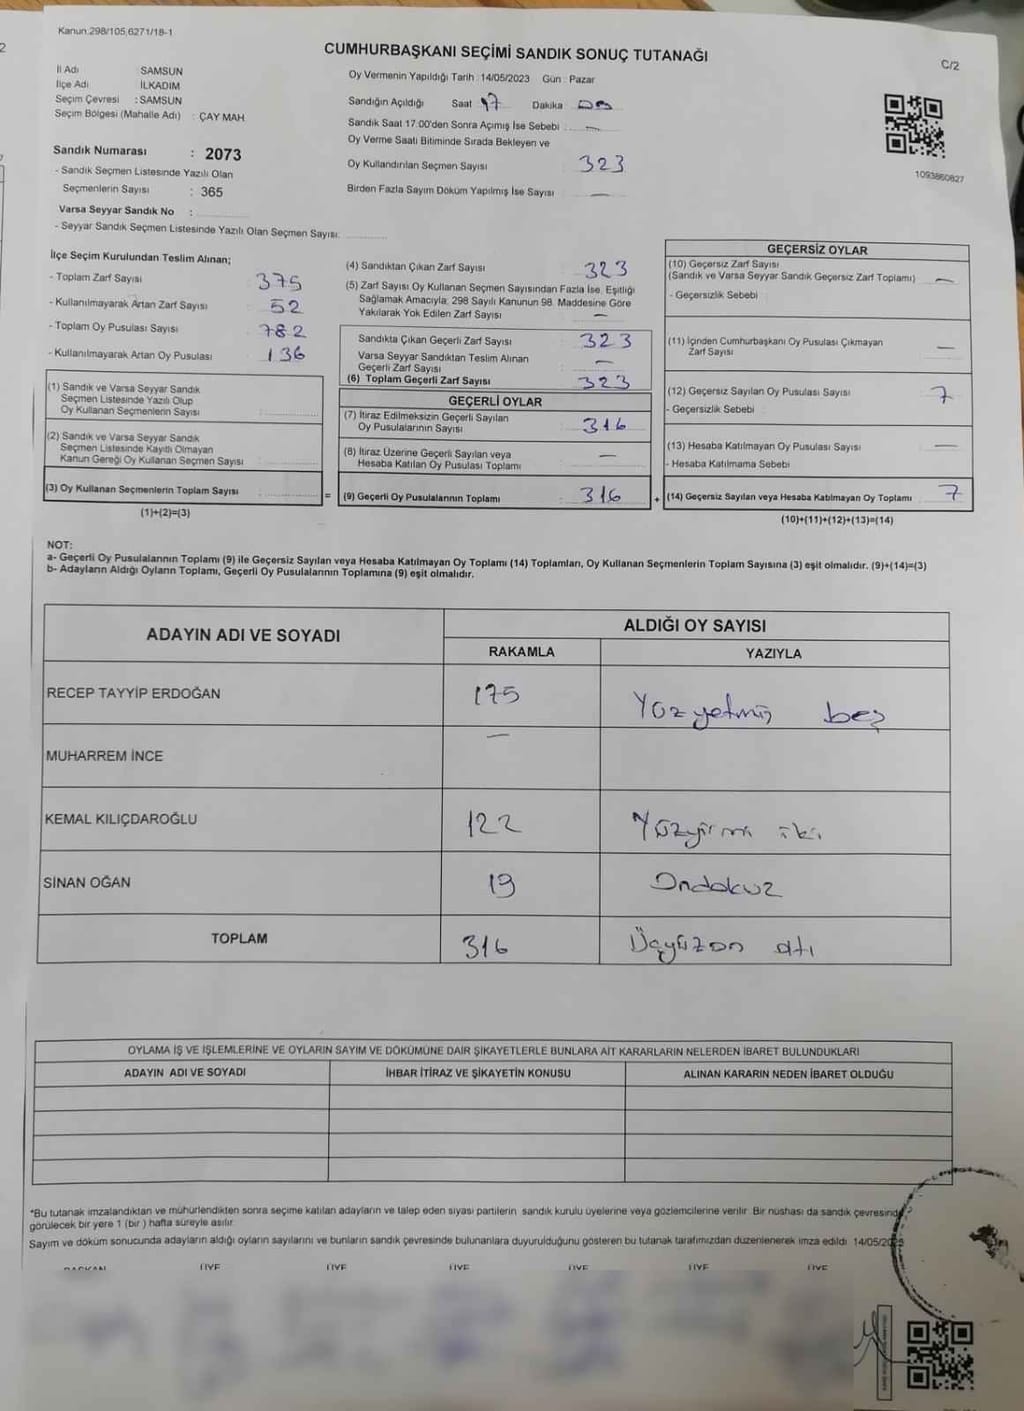 Kanun.298/105,6271/18-1
CUMHURBAŞKANI SEÇİMİ SANDIK SONUÇ TUTANAĞI
C/2
İl Adı SAMSUN
İlçe Adı İLKADIM
Seçim Çevresi : SAMSUN
Seçim Bölgesi (Mahalle Adı) : ÇAY MAH.
Sandık Numarası : 2073
- Sandık Seçmen Listesinde Yazılı Olan
Seçmenlerin Sayısı : 365
Varsa Seyyar Sandık No :
- Seyyar Sandık Seçmen Listesinde Yazılı Olan Seçmen Sayısı:
Oy Vermenin Yapıldığı Tarih : 14/05/2023 Gün : Pazar
Sandığın Açıldığı Saat 17 Dakika 00
Sandık Saat 17:00'den Sonra Açımış İse Sebebi : —
Oy Verme Saati Bitiminde Sırada Bekleyen ve
Oy Kullandırılan Seçmen Sayısı 323
Birden Fazla Sayım Döküm Yapılmış İse Sayısı —
1093860827
İlçe Seçim Kurulundan Teslim Alınan;
- Toplam Zarf Sayısı 375
- Kullanılmayarak Artan Zarf Sayısı 52
- Toplam Oy Pusulası Sayısı 782
- Kullanılmayarak Artan Oy Pusulası 136
(1) Sandık ve Varsa Seyyar Sandık
Seçmen Listesinde Yazılı Olup
Oy Kullanan Seçmenlerin Sayısı
(2) Sandık ve Varsa Seyyar Sandık
Seçmen Listesinde Kayıtlı Olmayan
Kanun Gereği Oy Kullanan Seçmen Sayısı
(3) Oy Kullanan Seçmenlerin Toplam Sayısı
(1)+(2)=(3)
=
(4) Sandıktan Çıkan Zarf Sayısı 323
(5) Zarf Sayısı Oy Kullanan Seçmen Sayısından Fazla İse, Eşitliği
Sağlamak Amacıyla, 298 Sayılı Kanunun 98. Maddesine Göre
Yakılarak Yok Edilen Zarf Sayısı —
Sandıkta Çıkan Geçerli Zarf Sayısı 323
Varsa Seyyar Sandıktan Teslim Alınan
Geçerli Zarf Sayısı —
(6) Toplam Geçerli Zarf Sayısı 323
GEÇERLİ OYLAR
(7) İtiraz Edilmeksizin Geçerli Sayılan
Oy Pusulalarının Sayısı 316
(8) İtiraz Üzerine Geçerli Sayılan veya
Hesaba Katılan Oy Pusulası Toplamı —
(9) Geçerli Oy Pusulalarının Toplamı 316
+
GEÇERSİZ OYLAR
(10) Geçersiz Zarf Sayısı
(Sandık ve Varsa Seyyar Sandık Geçersiz Zarf Toplamı) —
- Geçersizlik Sebebi
(11) İçinden Cumhurbaşkanı Oy Pusulası Çıkmayan
Zarf Sayısı —
(12) Geçersiz Sayılan Oy Pusulası Sayısı 7
- Geçersizlik Sebebi
(13) Hesaba Katılmayan Oy Pusulası Sayısı —
- Hesaba Katılmama Sebebi
(14) Geçersiz Sayılan veya Hesaba Katılmayan Oy Toplamı 7
(10)+(11)+(12)+(13)=(14)
NOT:
a- Geçerli Oy Pusulalarının Toplamı (9) ile Geçersiz Sayılan veya Hesaba Katılmayan Oy Toplamı (14) Toplamları, Oy Kullanan Seçmenlerin Toplam Sayısına (3) eşit olmalıdır. (9)+(14)=(3)
b- Adayların Aldığı Oyların Toplamı, Geçerli Oy Pusulalarının Toplamına (9) eşit olmalıdır.
ADAYIN ADI VE SOYADI
ALDIĞI OY SAYISI
RAKAMLA YAZIYLA
RECEP TAYYİP ERDOĞAN 175 Yüzyetmiş beş
MUHARREM İNCE —
KEMAL KILIÇDAROĞLU 122 Yüzyirmi iki
SİNAN OĞAN 19 Ondokuz
TOPLAM 316 Üçyüzon altı
OYLAMA İŞ VE İŞLEMLERİNE VE OYLARIN SAYIM VE DÖKÜMÜNE DAİR ŞİKAYETLERLE BUNLARA AİT KARARLARIN NELERDEN İBARET BULUNDUKLARI
ADAYIN ADI VE SOYADI İHBAR İTİRAZ VE ŞİKAYETİN KONUSU ALINAN KARARIN NEDEN İBARET OLDUĞU
*Bu tutanak imzalandıktan ve mühürlendikten sonra seçime katılan adayların ve talep eden siyasi partilerin sandık kurulu üyelerine veya gözlemcilerine verilir. Bir nüshası da sandık çevresinde
görülecek bir yere 1 (bir ) hafta süreyle asılır.
Sayım ve döküm sonucunda adayların aldığı oyların sayılarını ve bunların sandık çevresinde bulunanlara duyurulduğunu gösteren bu tutanak tarafımızdan düzenlenerek imza edildi. 14/05/2023
BAŞKAN ÜYE ÜYE ÜYE ÜYE ÜYE ÜYE